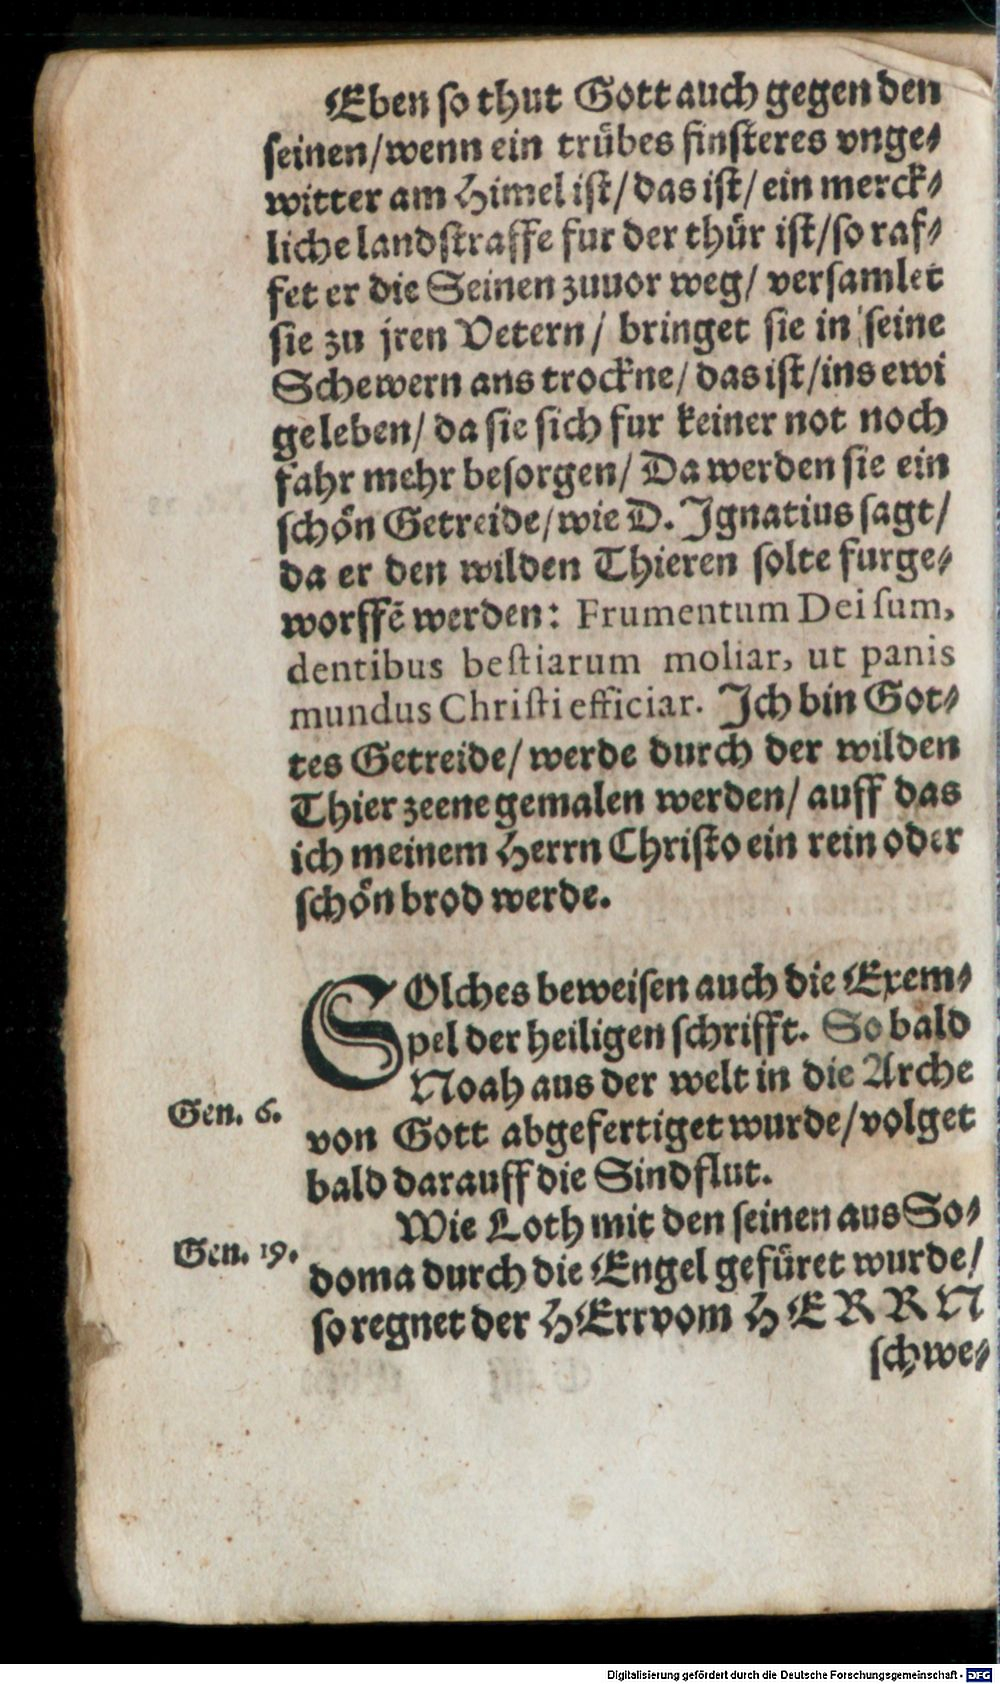 Eben so thut Gott auch gegen den
seinen/wenn ein trübes finsteres vnge⸗
witter am Himel ist/das ist/ein merck⸗
liche landstraffe fur der thür ist/so raf⸗
fet er die Seinen zuuor weg/ versamlet
sie zu jren Vetern/ bringet sie in seine
Schewern ans trockne/das ist/ins ewi
ge leben/ da sie sich fur keiner not noch
fahr mehr besorgen/ Da werden sie ein
schön Getreide/wie D. Ignatius sagt/
da er den wilden Thieren solte furge⸗
worffē werden: Frumentum Dei sum,
dentibus bestiarum moliar, ut panis
mundus Christi efficiar. Ich bin Got⸗
tes Getreide/ werde durch der wilden
Thier zeene gemalen werden/ auff das
ich meinem Herrn Christo ein rein oder
schön brod werde.
SOlches beweisen auch die Exem⸗
pel der heiligen schrifft. So bald
Noah aus der welt in die Arche
Gen. 6.
von Gott abgefertiget wurde/volget
bald darauff die Sindflut.
Wie Loth mit den seinen aus So⸗
Gen. 19.
doma durch die Engel gefüret wurde/
so regnet der HErr vom HERRN
schwe⸗
Digitalisierung gefördert durch die Deutsche Forschungsgemeinschaft - DFG